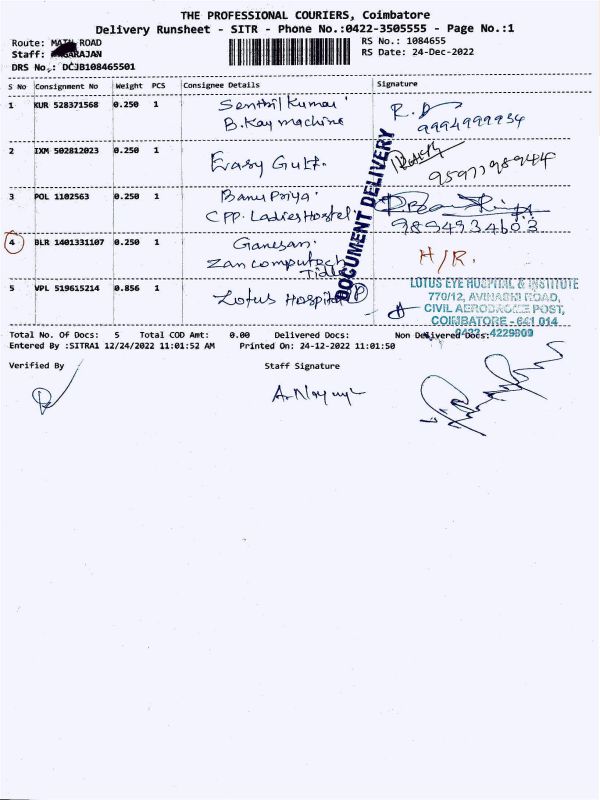 THE PROFESSIONAL COURIERS, Coimbatore
Delivery Runsheet - SITR - Phone No.:0422-3505555 - Page No.:1
Route: MAIN ROAD
RS No.: 1084655
Staff: GARAJAN
RS Date: 24-Dec-2022
DRS No.: DCJB108465501
S No Consignment No Weight PCS Consignee Details Signature
1 KUR 528371568 0.250 1 Senthil Kumar
B.Kay machine
9994999934
2 IXM 502812023 0.250 1
9597798944
3 POL 1102563 0.250 1 Banu Priya
CPP. Ladies Hostel
9894934603
4 BLR 1401331107 0.250 1 Ganesan. H/R.
Zan computech
Tidel
5 VPL 519615214 0.856 1 Lotus Hospital P
DOCUMENT DELIVERY
LOTUS EYE HOSPITAL & INSTITUTE
770/12, AVINASHI ROAD,
CIVIL AERODROME POST,
COIMBATORE - 641 014
0422 - 4229900
Total No. Of Docs: 5 Total COD Amt: 0.00 Delivered Docs: Non Delivered Docs:
Entered By :SITRA1 12/24/2022 11:01:52 AM Printed On: 24-12-2022 11:01:50
Verified By Staff Signature